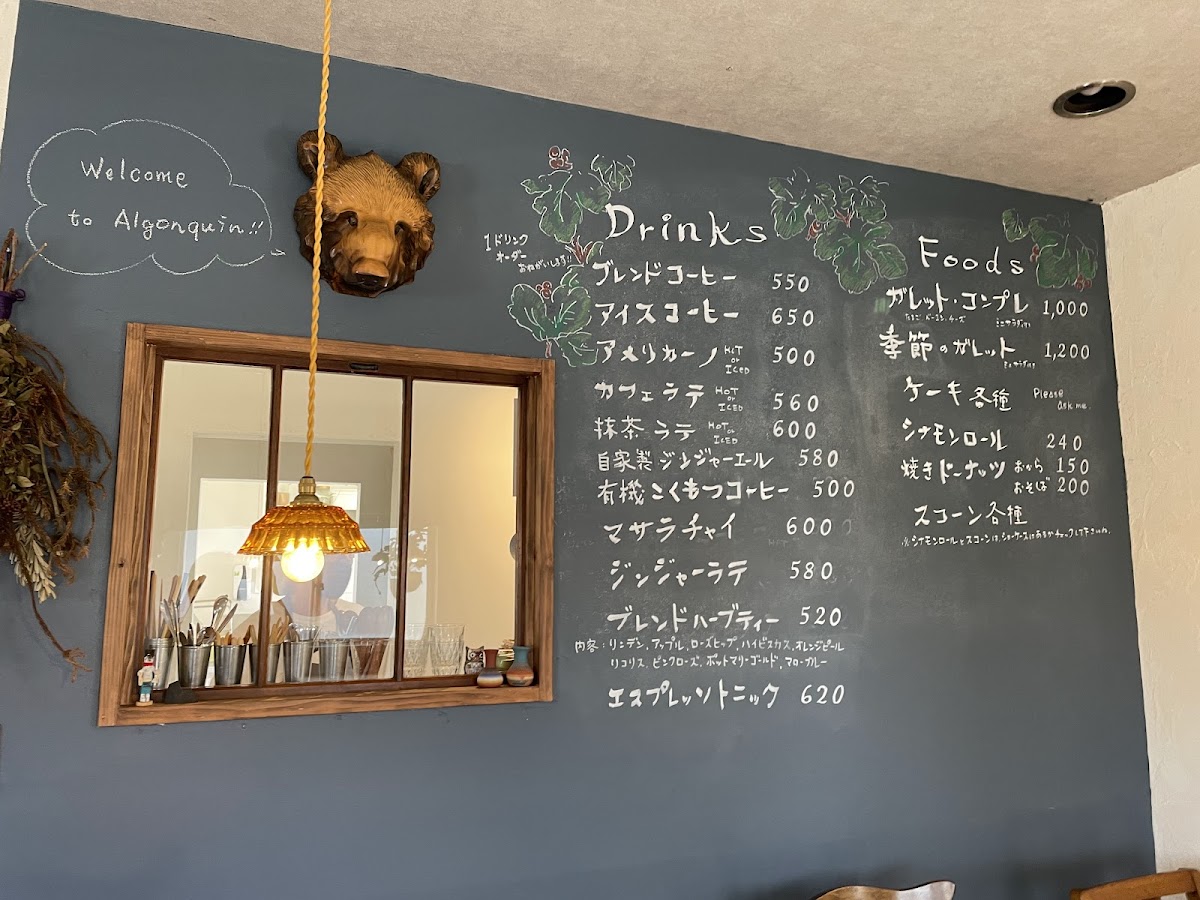 Welcome
to Algonquin!!
1ドリンク
オーダー
おねがいします!!
Drinks
ブレンドコーヒー 550
アイスコーヒー 650
アメリカーノ HOT or ICED 500
カフェラテ HOT or ICED 560
抹茶ラテ HOT or ICED 600
自家製ジンジャーエール 580
有機こくもつコーヒー 500
マサラチャイ 600
ジンジャーラテ 580
ブレンドハーブティー 520
内容:リンデン、アップル、ローズヒップ、ハイビスカス、オレンジピール
リコリス、ピンクローズ、ポットマリーゴールド、マローブルー
エスプレッソトニック 620
Foods
ガレット・コンプレ 1,000
たまご ベーコン、チーズ ミニサラダ付
季節のガレット 1,200
ミニサラダ付
ケーキ各種 Please ask me.
シナモンロール 240
焼きドーナッツ おから 150
おそば 200
スコーン各種
※シナモンロールとスコーンは、ショーケースに